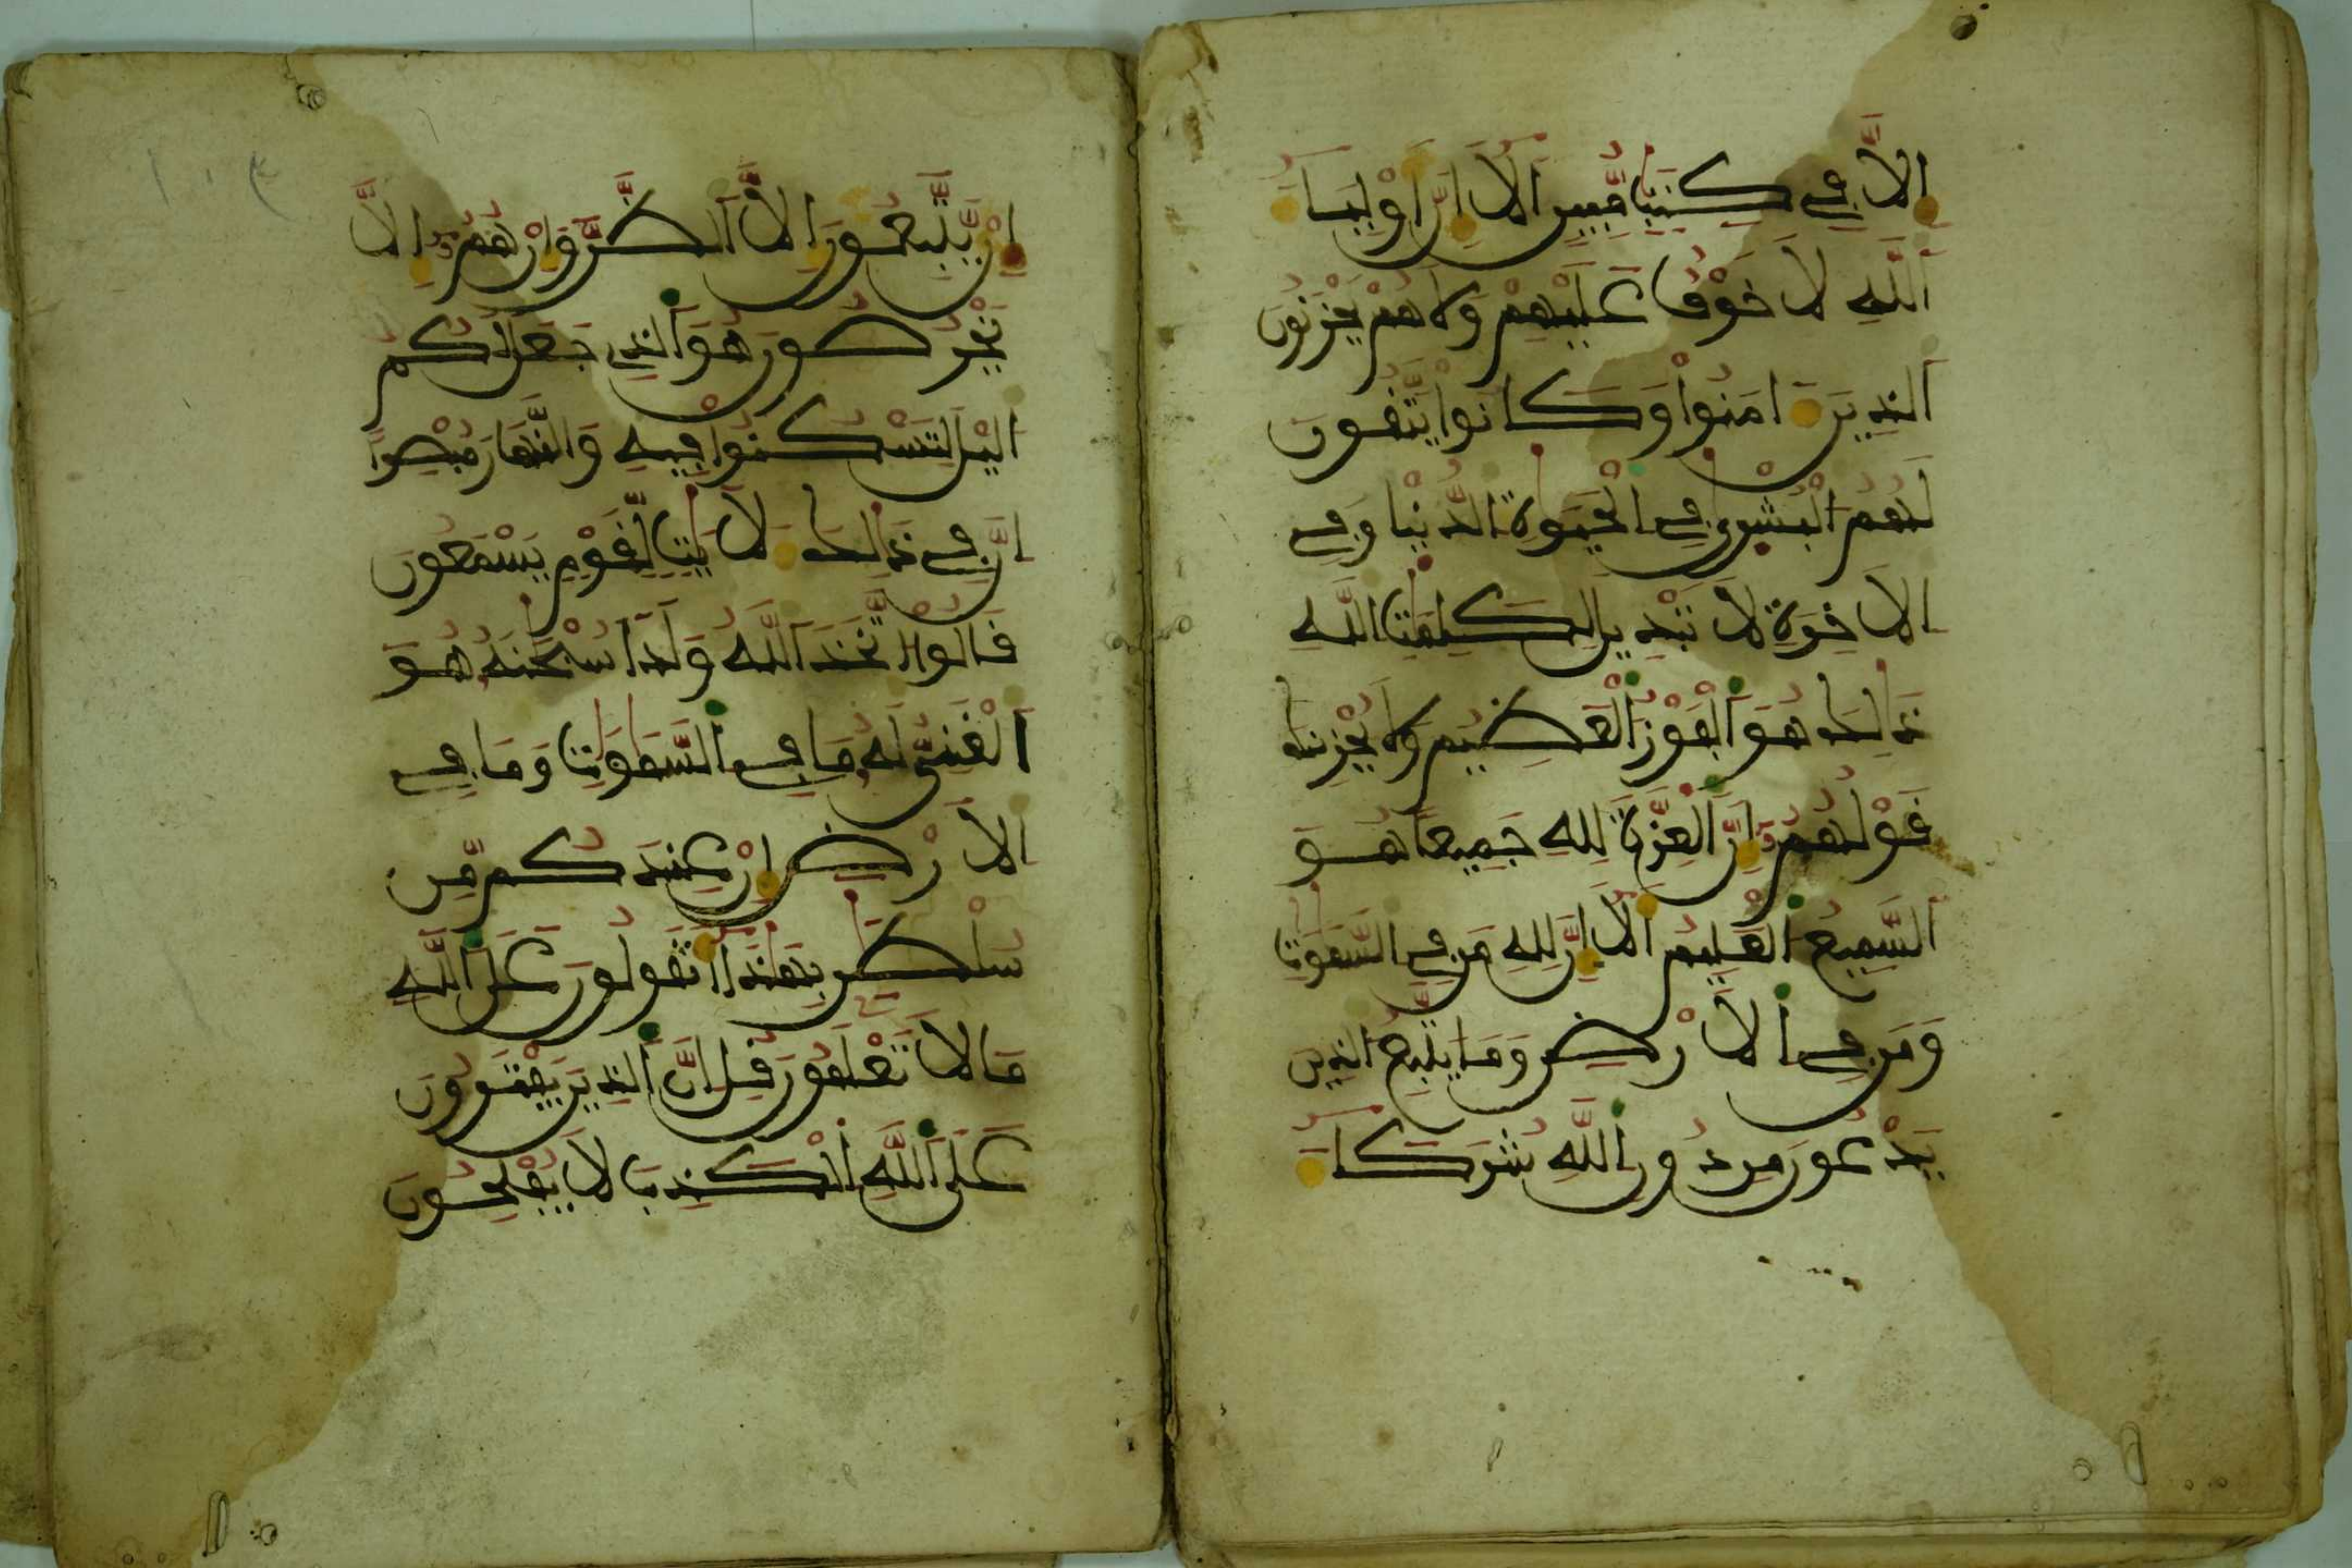 اِلَّا فِے كِتَٰبٖ مُّبِينٍ اَلَآ إِنَّ أَوْلِيَآءَ
اَ۬للَّهِ لَا خَوْفٌ عَلَيْهِمْ وَلَا هُمْ يَحْزَنُونَ
اَ۬لذِينَ ءَامَنُواْ وَكَانُواْ يَتَّقُونَ
لَهُمُ اُ۬لْبُشْر۪يٰ فِے اِ۬لْحَيَوٰةِ اِ۬لدُّنْيَا وَفِے
اِ۬لَاخِرَةِ لَا تَبْدِيلَ لِكَلِمَٰتِ اِ۬للَّهِ
ذَٰلِكَ هُوَ اَ۬لْفَوْزُ اُ۬لْعَظِيمُ وَلَا يُحْزِنكَ
قَوْلُهُمُۥٓ إِنَّ اَ۬لْعِزَّةَ لِلهِ جَمِيعاً هُوَ
اَ۬لسَّمِيعُ اُ۬لْعَلِيمُ أَلَآ إِنَّ لِلهِ مَن فِے اِ۬لسَّمَٰوَٰتِ
وَمَن فِے اِ۬لَارْضِ وَمَا يَتَّبِعُ اُ۬لذِينَ
يَدْعُونَ مِن دُونِ اِ۬للَّهِ شُرَكَآءَ
١٠٣
اِنْ يَّتَّبِعُونَ إِلَّا اَ۬لظَّنَّ وَإِنْ هُمُۥٓ إِلَّا
يَخْرُصُونَ هُوَ اَ۬لذِے جَعَلَ لَكُمُ
اُ۬ليْلَ لِتَسْكُنُواْ فِيهِ وَالنَّهَارَ مُبْصِراً
اِنَّ فِے ذَٰلِكَ ءَلَايَٰتٖ لِّقَوْمٖ يَسْمَعُونَ
قَالُواْ اُ۪تَّخَذَ اَ۬للَّهُ وَلَداً سُبْحَٰنَهُۥ هُوَ
اَ۬لْغَنِيُّ لَهُۥ مَا فِے اِ۬لسَّمَٰوَٰتِ وَمَا فِے
اِ۬لَارْضِ إِنْ عِندَكُم مِّن
سُلْطَٰنِۢ بِهَٰذَآ أَتَقُولُونَ عَلَي اَ۬للَّهِ
مَا لَا تَعْلَمُونَ قُلِ انَّ اَ۬لذِينَ يَفْتَرُونَ
عَلَي اَ۬للَّهِ اِ۬لْكَذِبَ لَا يُفْلِحُونَ